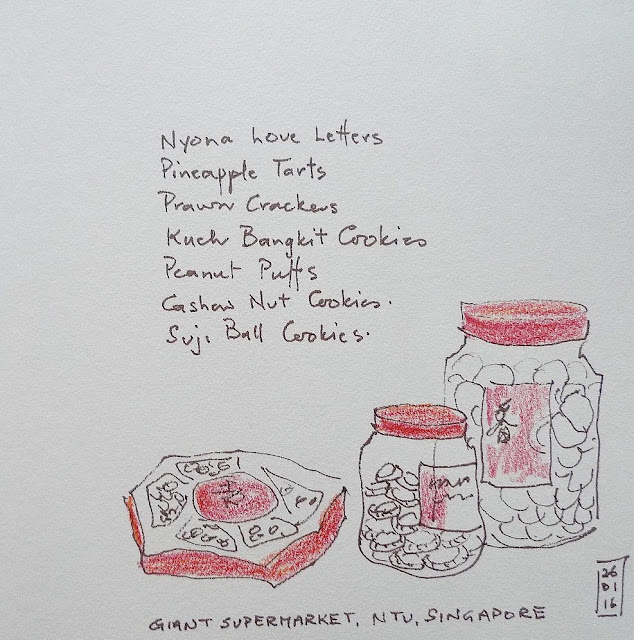 Nyona Love Letters
Pineapple Tarts
Prawn Crackers
Kueh Bangkit Cookies
Peanut Puffs
Cashew Nut Cookies.
Suji Ball Cookies.
春
26
01
16
GIANT SUPERMARKET, NTU, SINGAPORE